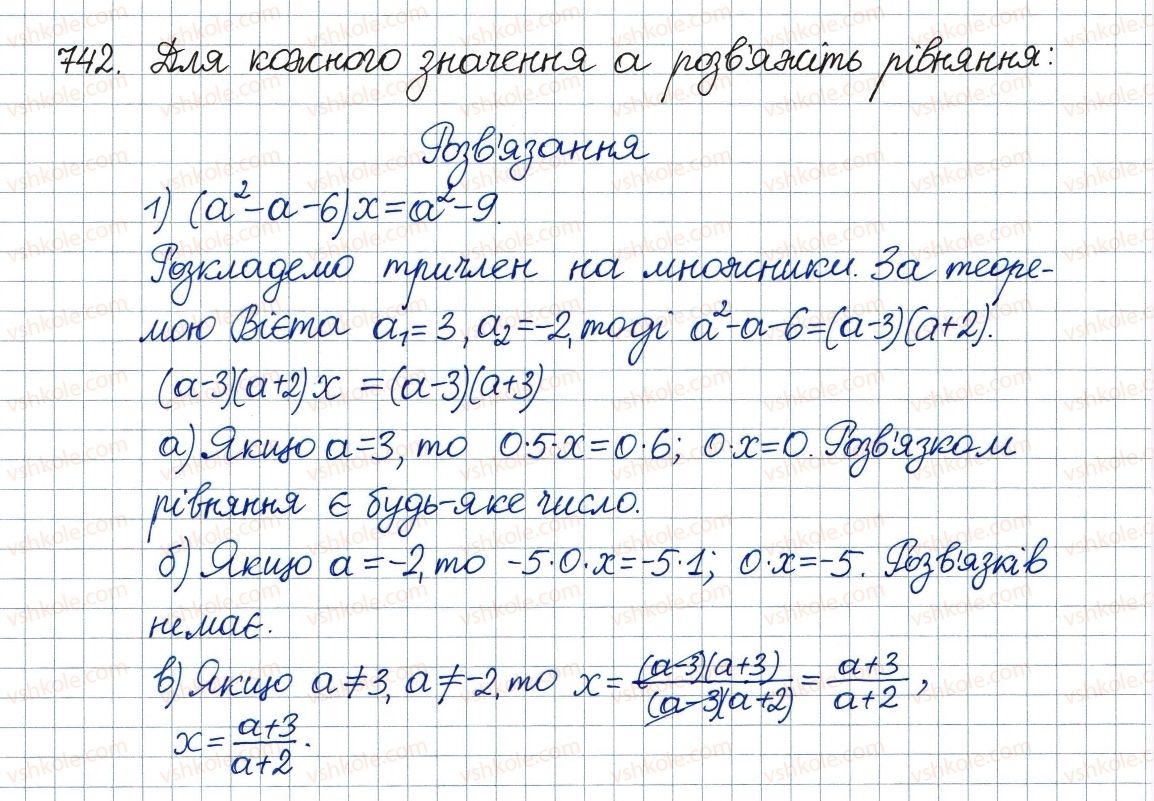 742. Для кожного значення а розв'яжіть рівняння:
Розв'язання
1) (a²-a-6)x=a²-9.
Розкладемо тричлен на множники. За теоре-
мою Вієта a₁=3, a₂=-2, тоді a²-a-6=(a-3)(a+2).
(a-3)(a+2)x=(a-3)(a+3)
а) Якщо a=3, то 0·5·x=0·6; 0·x=0. Розв'язком
рівняння є будь-яке число.
б) Якщо a=-2, то -5·0·x=-5·1; 0·x=-5. Розв'язків
немає.
в) Якщо a≠3, a≠-2, то x=(a-3)(a+3)/(a-3)(a+2)=a+3/a+2,
x=a+3/a+2.